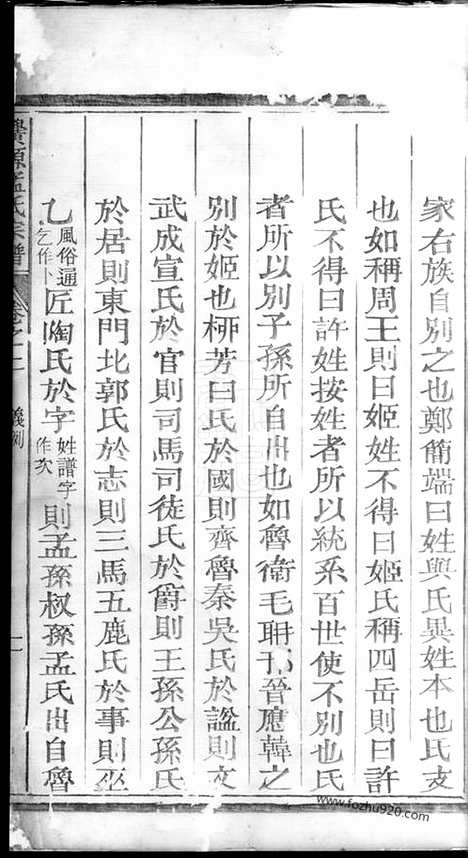 家右族自別之也鄭簡端曰姓與氏異姓本也氏支
也如稱周王則曰姬姓不得曰姬氏稱四岳則曰許
氏不得曰許姓按姓者所以統系百世使不別也氏
者所以別子孫所自出也如魯衛毛聃邘晉應韓之
別於姬也柳芳曰氏於國則齊魯秦吳氏於謚則文
武成宣氏於官則司馬司徒氏於爵則王孫公孫氏
於居則東門北郭氏於志則三馬五鹿氏於事則巫
乙風俗通乞作卜匠陶氏於字姓譜字作次則孟孫叔孫孟氏出自魯
源孟氏宗譜 卷之 義例
www.fozhu920.com